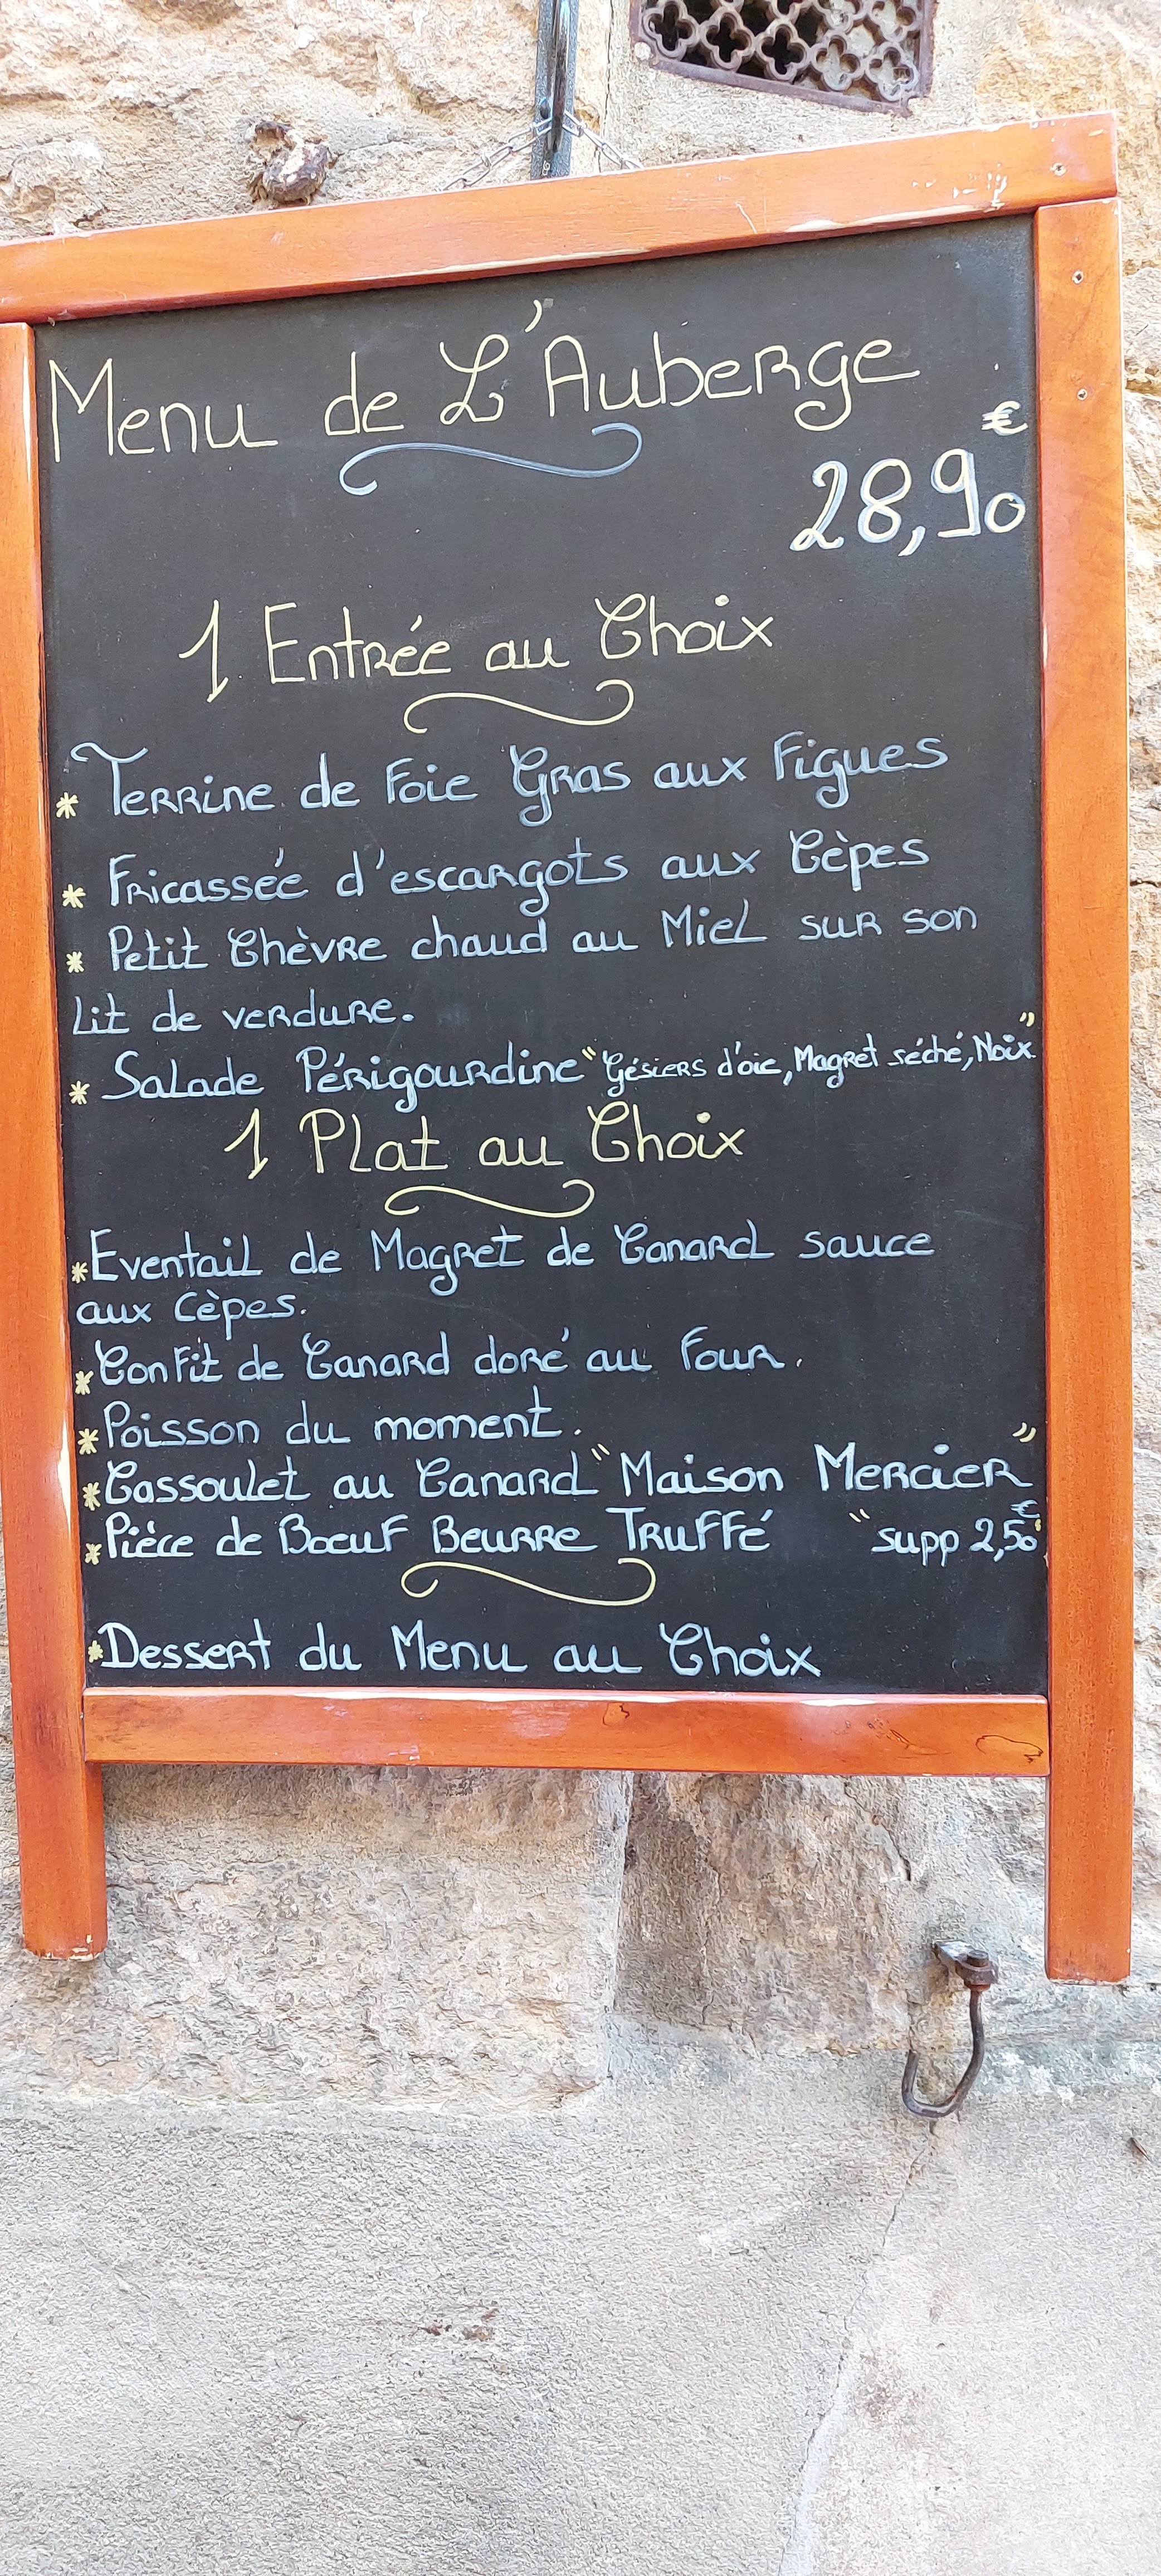 Menu de L'Auberge
28,90€
1 Entrée au Choix
* Terrine de Foie Gras aux Figues
* Fricassée d'escargots aux Cèpes
* Petit Chèvre chaud au Miel sur son
lit de verdure.
* Salade Périgourdine "Gésiers d'oie, Magret séché, Noix"
1 Plat au Choix
* Eventail de Magret de Canard sauce
aux Cèpes.
* Confit de Canard doré au Four.
* Poisson du moment.
* Cassoulet au Canard "Maison Mercier"
* Pièce de Boeuf Beurre Truffé "supp 2,50€"
* Dessert du Menu au Choix